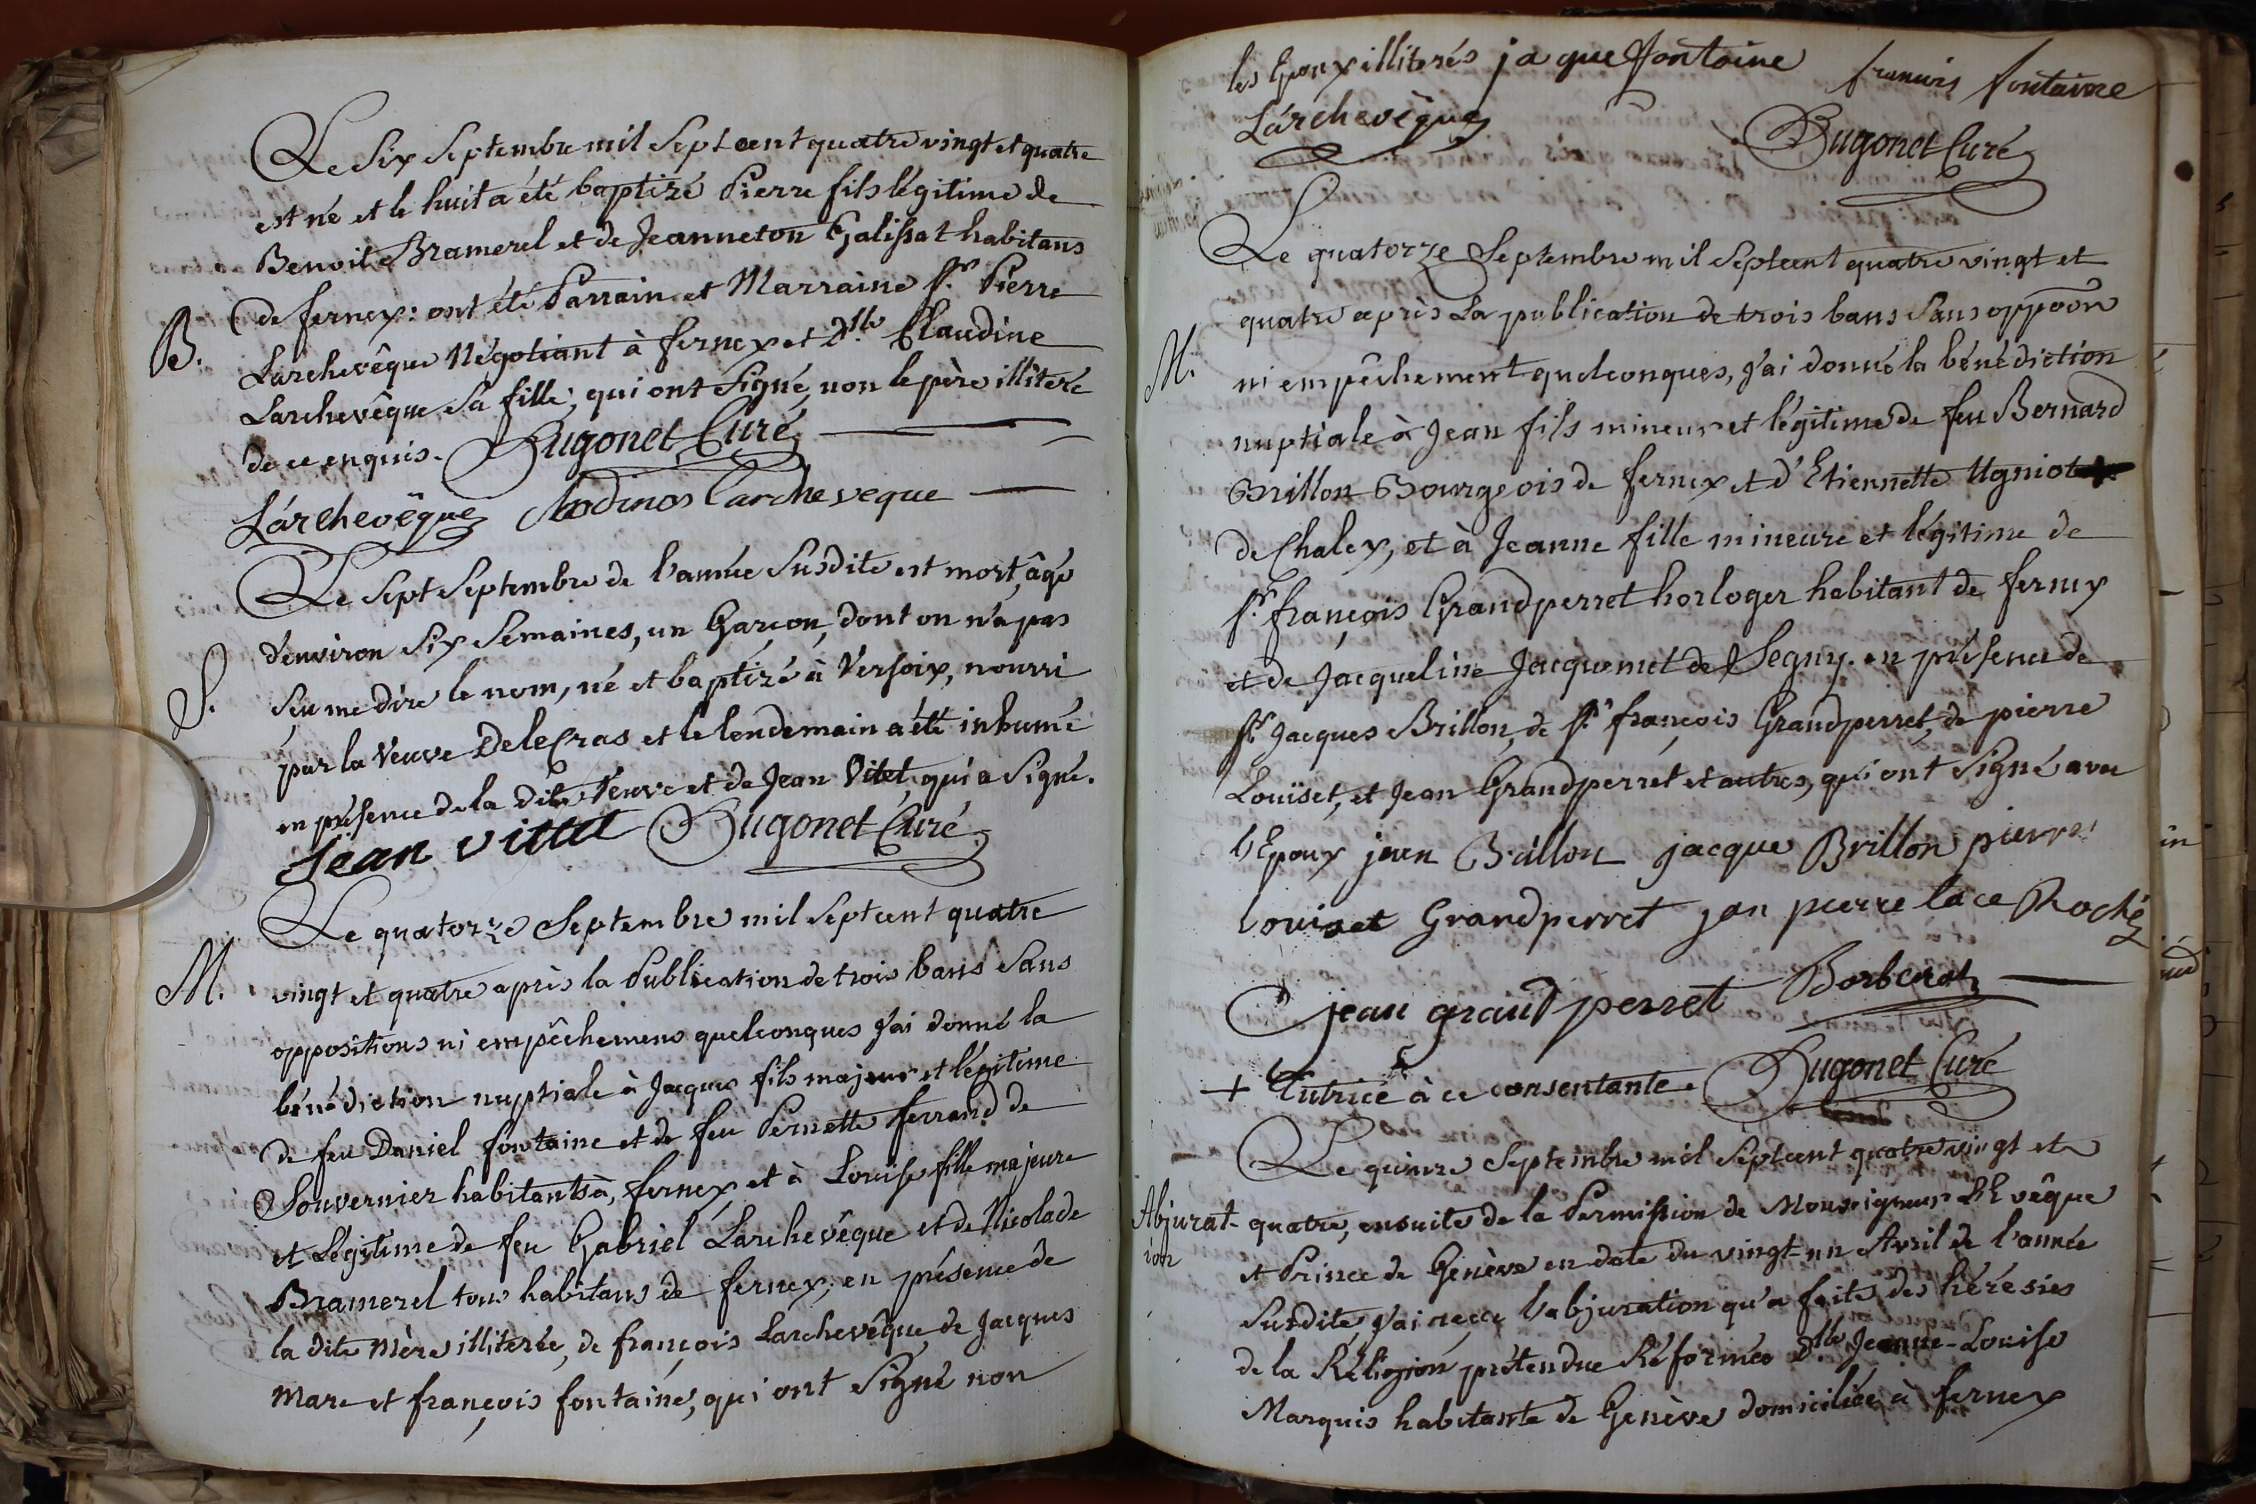 Le Six Septembre mil Sept cent quatre vingt et quatre
est né et le huit a été baptizé Pierre fils légitime de
Benoit Bramerel et de Jeanneton Galissat habitans
B.
de fernex: ont été Parrain et Marraine Sr. Pierre
Larchevêque Négotiant à fernex et Dlle. Claudine
Larchevêque Sa fille, qui ont Signé, non le père illiteré
de ce enquis. Dugonet Curé
Lárchevêque Clodinos Larcheveque
Le Sept Septembre de l'année Susdite est mort, âgé
d'environ Six Semaines, un Garçon, dont on n'a pas
S.
Seu me dire le nom, né et baptizé à Versoix, nourri
par la Veuve DeleCras et le lendemain a été inhumé
en présence de la dite Veuve et de Jean Vitet, qui a Signé.
Jean vittet Dugonet Curé
Le quatorze Septembre mil Septcent quatre
M.
vingt et quatre après la Publication de trois bans Sans
oppositions ni empêchemens quelconques j'ai donné la
bénédiction nuptiale à Jacques fils majeur et légitime
de feu Daniel fontaine et de feu Pernette ferrand de
Souvernier habitants à fernex et à Louise fille majeure
et Légitime de feu Gabriel Lárchevêque et de Nicolade
Bramerel tous habitans de fernex; en présence de
la dite Mère illiterée, de françois Larchevêque, de Jacques
Mare et françois fontaine, qui ont Signé non
les Epoux illiterés jaque fontaine francois fontaine
Lárchevêque Dugonet Curé
Le quatorze Septembre mil Septcent quatre vingt et
quatre après La publication de trois bans Sans oppoon
M.
ni empêchement quelconques, j'ai donné la bénédiction
nuptiale à Jean fils mineur et légitime de feu Bernard
Brillon Bourgeois de fernex et d'Etiennette Ugniot +
de Chalex, et à Jeanne fille mineure et légitime de
Sr. françois Grandperret horloger habitant de fernex
et de Jacqueline Jacquemet de Segny. en présence de
Sr. Jacques Brillon, de Sr. françois Grandperret, de pierre
Louïset, et Jean Grandperret et autres, qui ont Signé avec
l'Epoux jean Brillon jacque Brillon pierre
Louiset Grandperret jan pierre lace Roché
jean grand perret Borberat
+ Tutrice à ce consentante. Dugonet Curé
Le quinze Septembre mil Septcent quatre vingt et
Abjurat-
ion
quatre, ensuite de la Permission de Monseigneur L'Evêque
et Prince de Genève en date du vingt-un Avril de l'année
Susdite j'ai reçu l'abjuration qu'a faite des hérésies
de la Réligion prétendue Réformée Dlle. Jeanne-Louise
Marquis habitante de Genève domiciliée à fernex